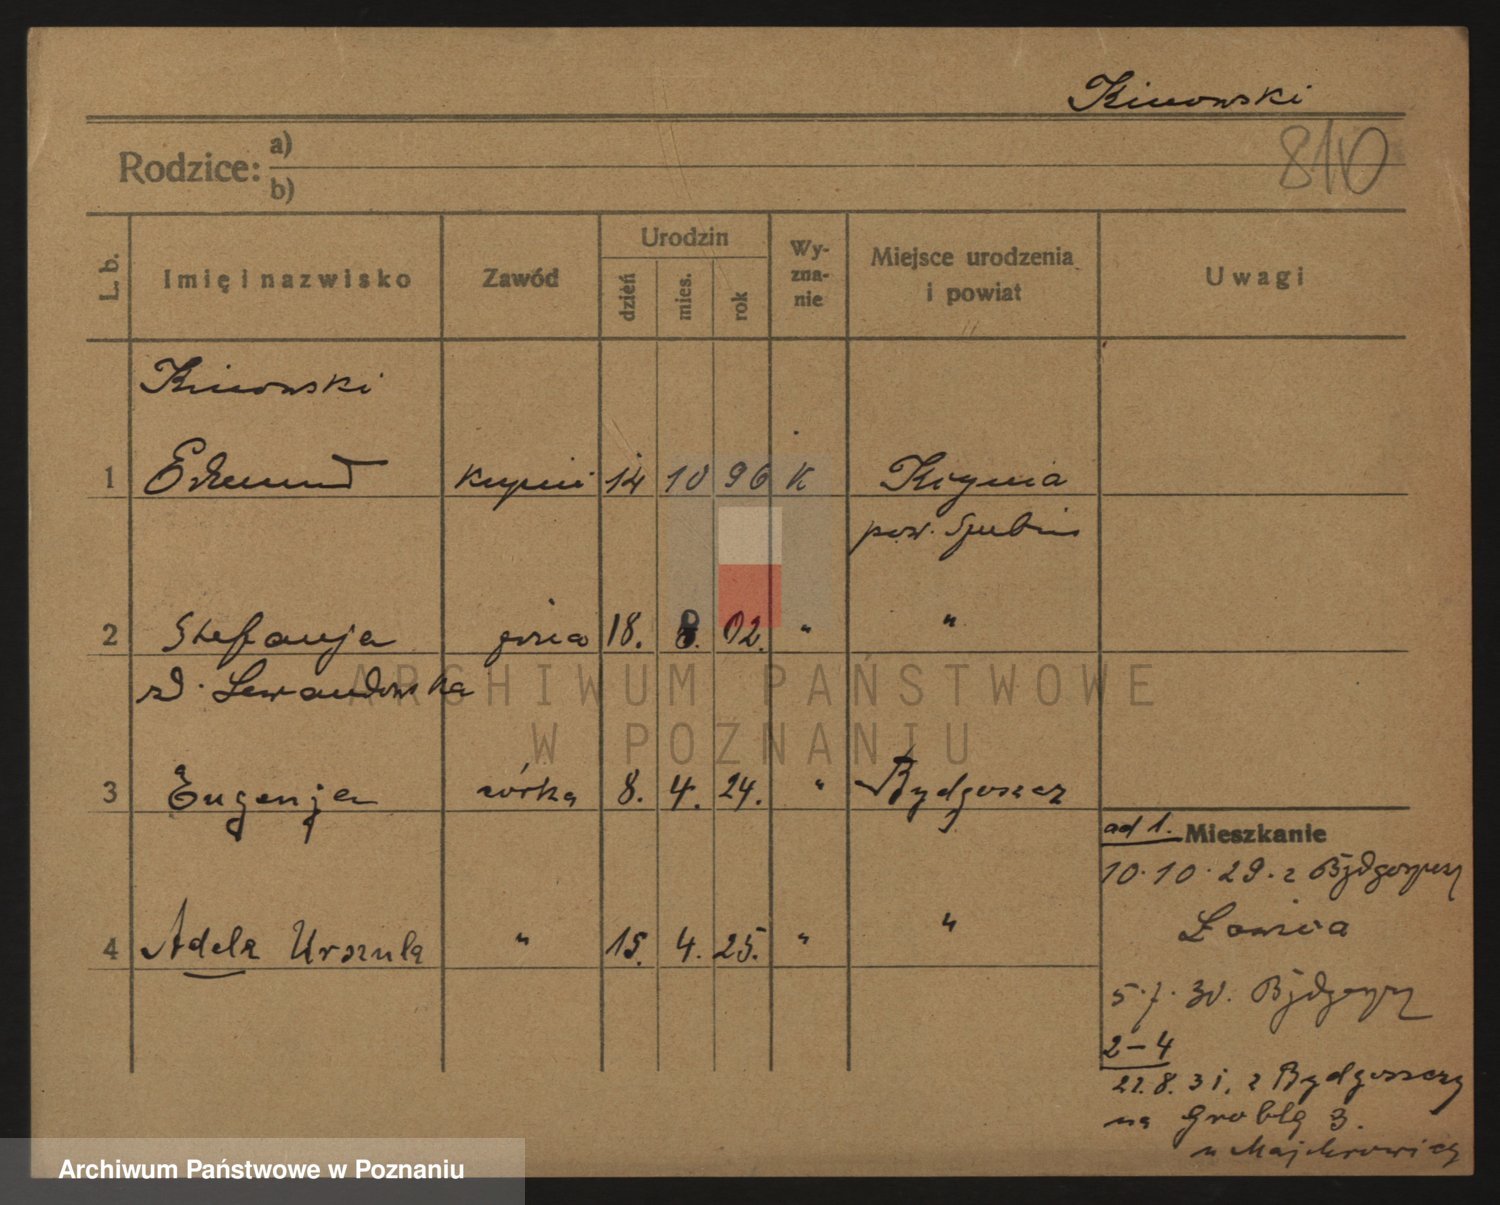 Kinowski
810
Rodzice: a)
b)
L. b.
Imię i nazwisko
Zawód
Urodzin
dzień
mies.
rok
Wy-
zna-
nie
Miejsce urodzenia
i powiat
Uwagi
Kinowski
1 Edmund kupiec 14 10 96 K Kcynia
pow. Szubin
2 Stefanja żona 18. 8. 02. " "
zd. Lewandowska
3 Eugenja córka 8. 4. 24. " Bydgoszcz
4 Adela Urszula " 15. 4. 25. " "
ad 1. Mieszkanie
10.10.29. z Bydgoszczy
Ławica
5.7.30. Bydgoszcz
2-4
22.8.31. z Bydgoszczy
na Groblę 3.
u Majchrowicz
ARCHIWUM PAŃSTWOWE
W POZNANIU
Archiwum Państwowe w Poznaniu